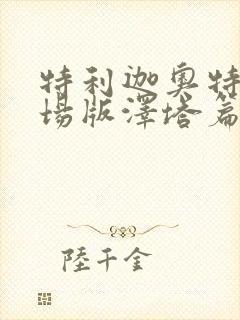 特利迦奥特
場版澤塔篇
陸千金